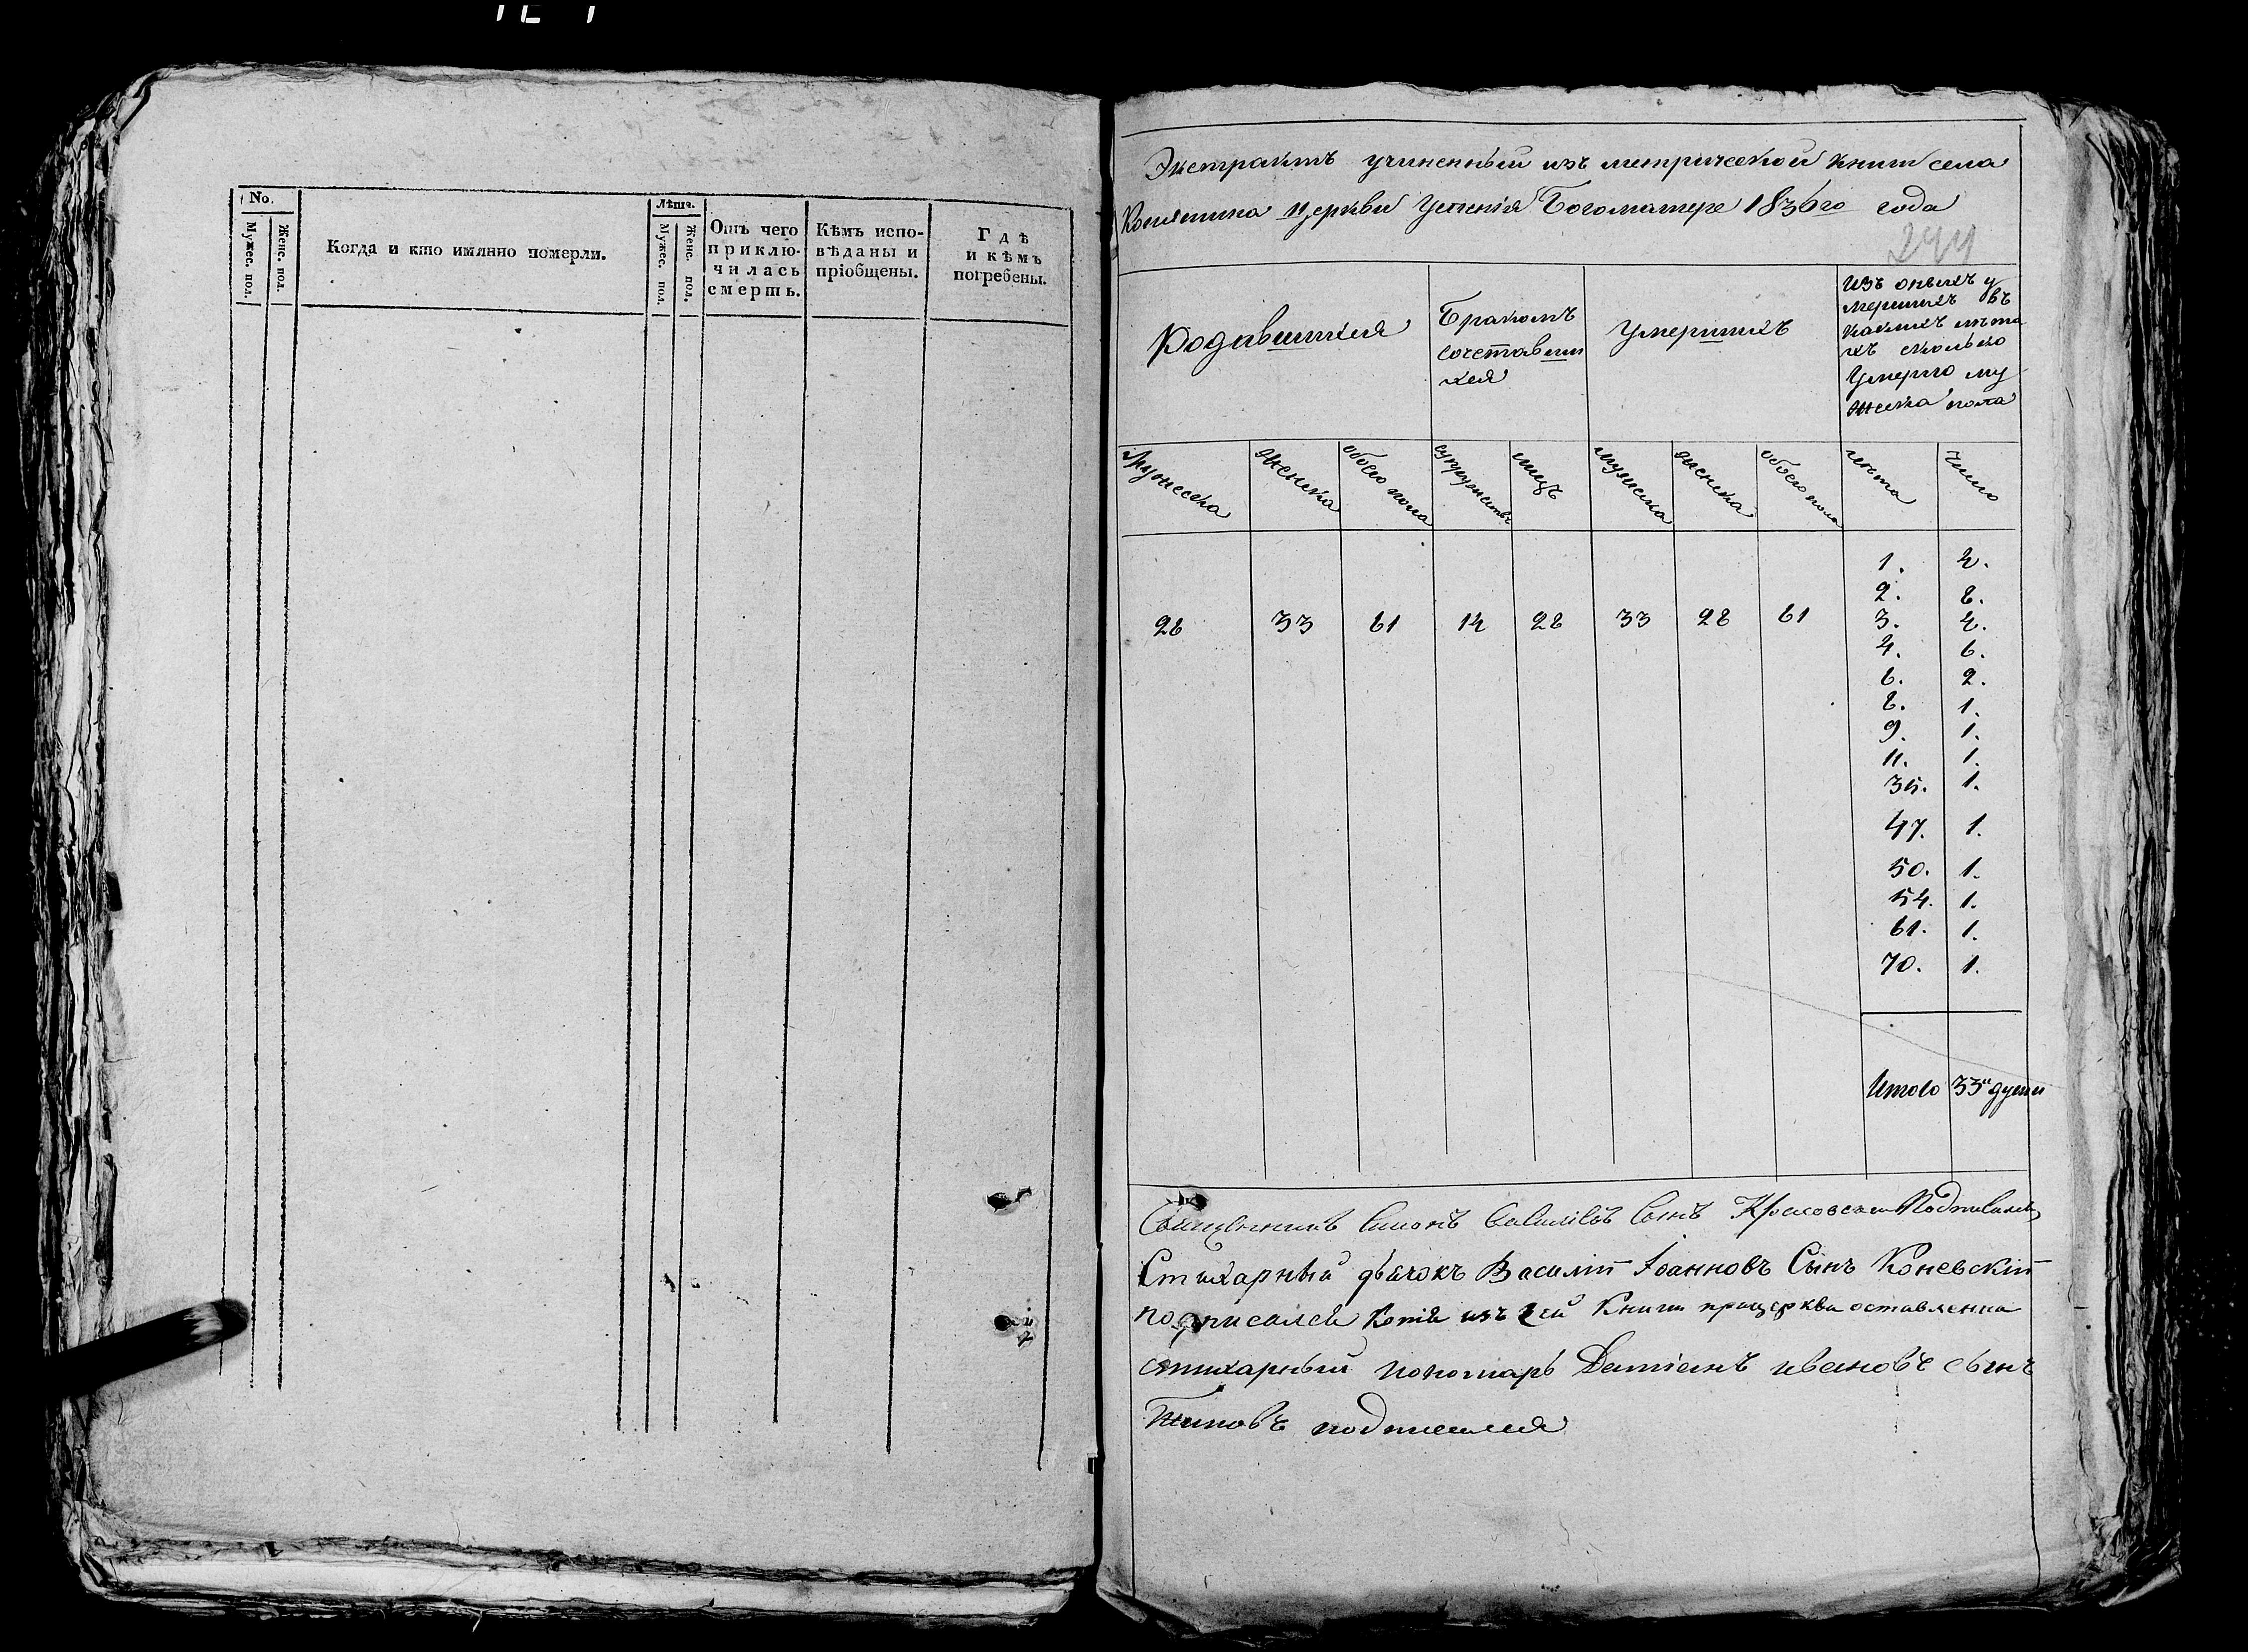 No.
Мужес. пол.
Женс. пол.
Когда и кто имянно померли.
Лѣта.
Мужес. пол.
Женс. пол.
Отъ чего
приклю-
чилась
смерть.
Кѣмъ испо-
вѣданы и
пріобщены.
Гдѣ
и кѣмъ
погребены.
Экстрактъ учиненный изъ метрической книги села
церкви Успенія Богоматере 1836го года
244
Родившихся
Бракомъ
сочетавши
хся
Умершихъ
Изъ оныхъ у
мершихъ въ
какихъ лѣта
хъ сколько
Умерло му
жеска пола
Мужеска
женска
обоего пола
супружествъ
лицъ
мужеска
женска
обоего пола
лѣта
число
28 33 61 14 28 33 28 61
1. 4.
2. 8.
3. 4.
4. 6.
6. 2.
8. 1.
9. 1.
11. 1.
35. 1.
47. 1.
50. 1.
54. 1.
61. 1.
70. 1.
Итого 33 души
Священникъ Сынъ
Стихарный дьячокъ Василій Іоанновъ Сынъ Коневскій
подписался Копія изъ сей Книги прицеркви оставленна
стихарный пономарь Даміанъ ивановъ сынъ
подписался